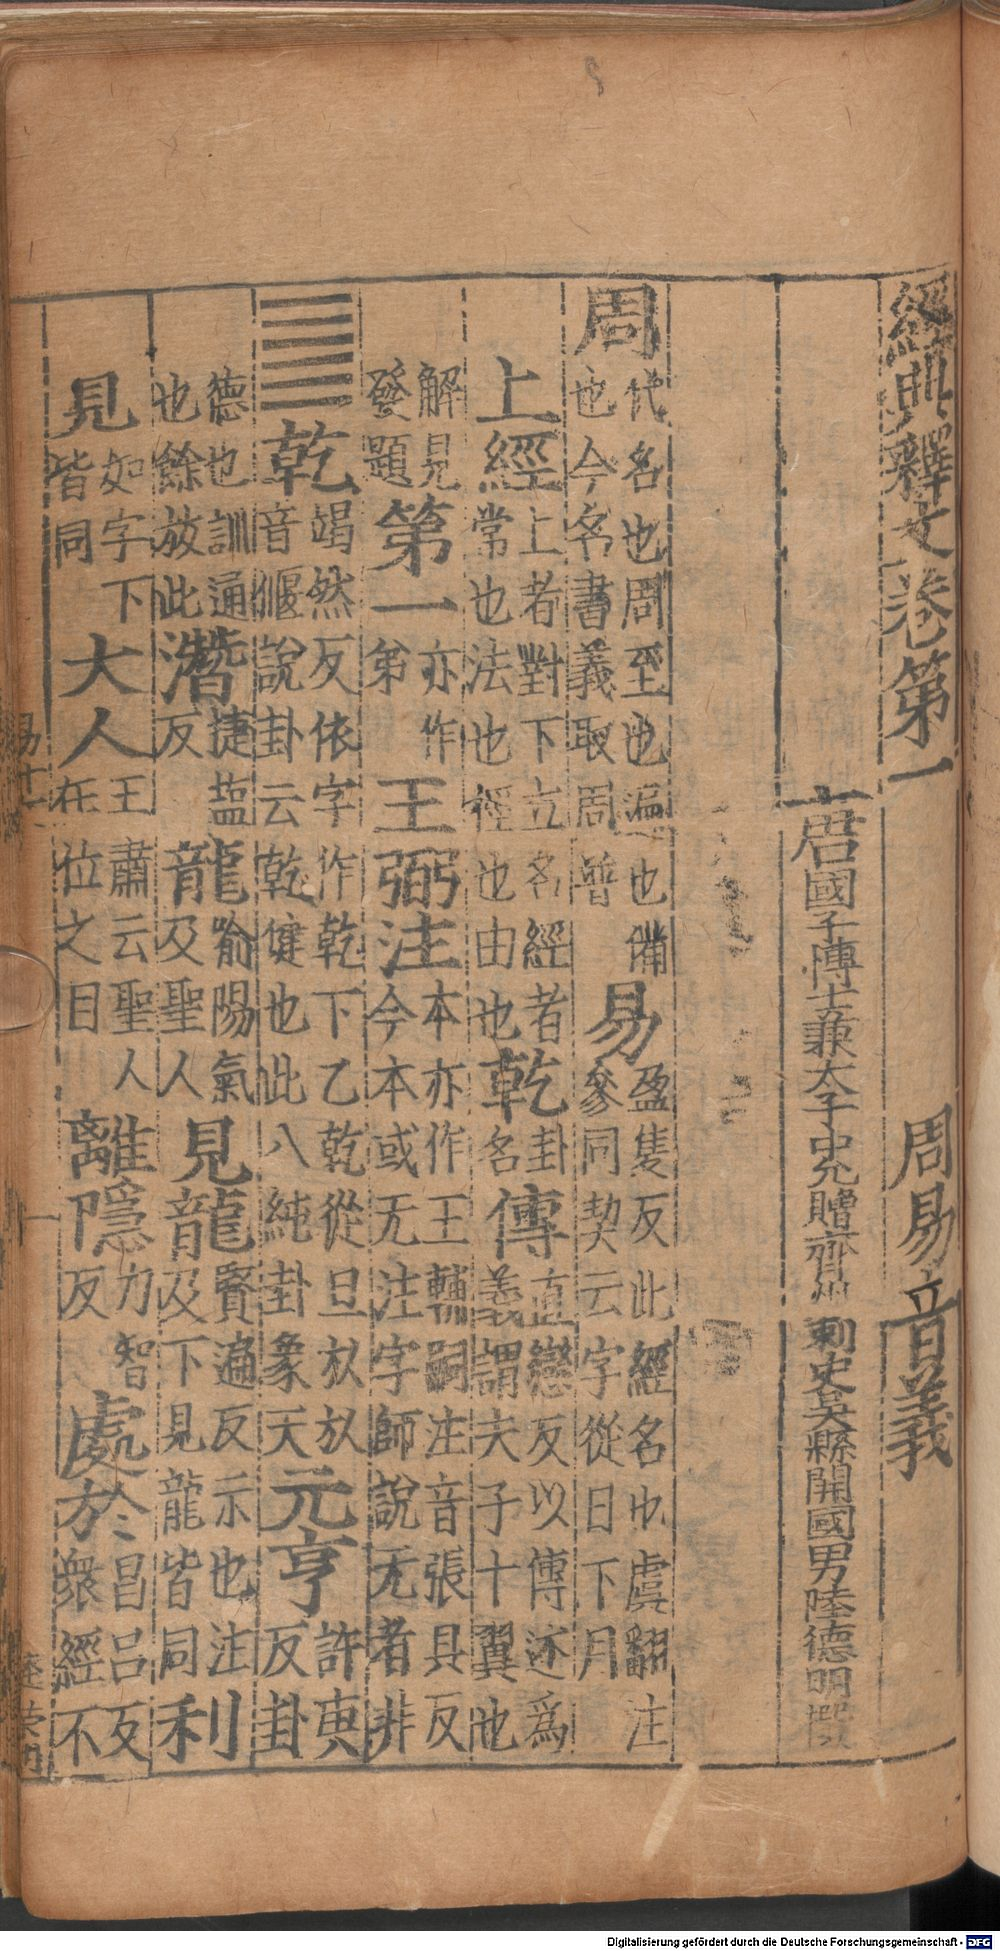 經典釋文卷第一　周易音義
唐國子博士兼太子中允贈齊州刺史吳縣開國男陸德明撰
周代名也周至也遍也備也今名書義取周普易盈隻反此經名也虞翻注參同契云字從日下月
上經上者對下立名經者常也法也徑也由也乾卦名傳直戀反以傳述爲義謂夫子十翼也
解見發題第一亦作弟王弼注本亦作王輔嗣注音張具反今本或无注字師說无者非
☰☰乾竭然反依字作乾下乙乾從旦㫃㫃音偃說卦云乾健也此八純卦象天元亨許庚反卦
德也訓通也餘放此潛捷鹽反龍喻陽氣及聖人見龍賢遍反示也注及下見龍皆同利
見如字下皆同大人王肅云聖人在位之目離隱力智反處於昌呂反衆經不
易十一　一
Digitalisierung gefördert durch die Deutsche Forschungsgemeinschaft - DFG